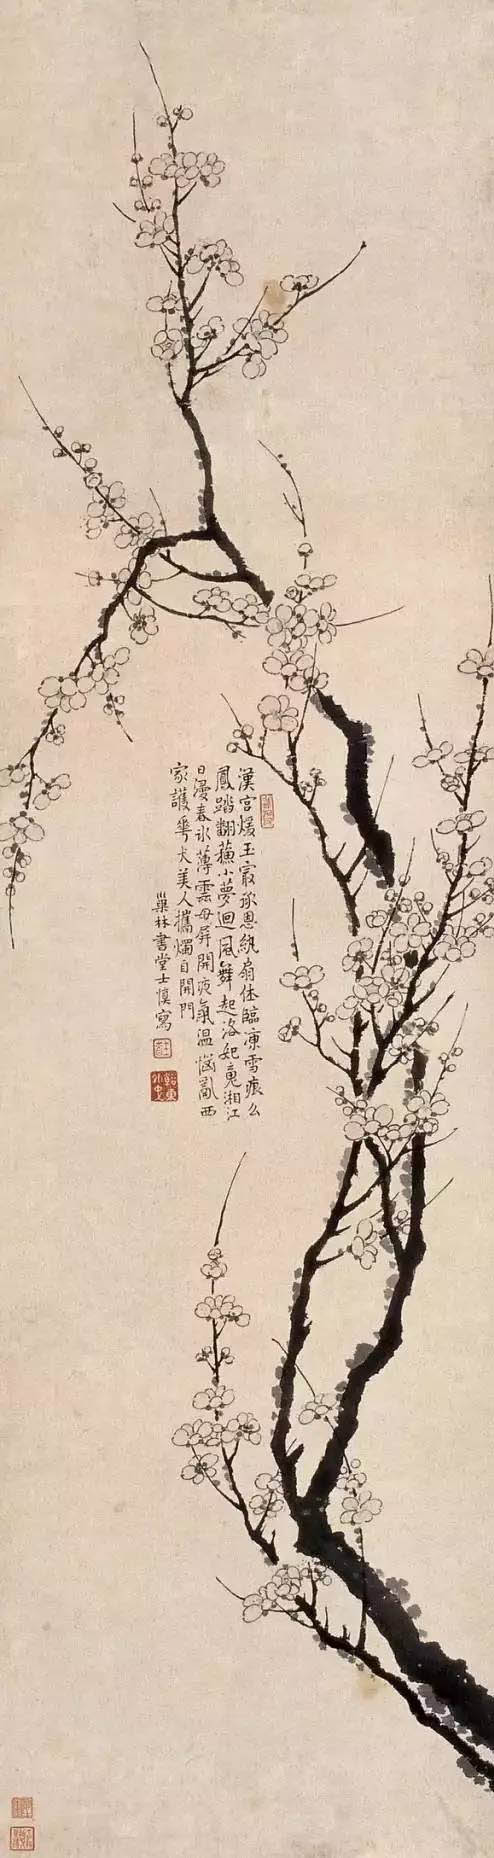 漢宮煖玉冣承恩紈扇休臨凍雪痕么
鳳踏翻蘓小夢迴風舞起洛妃魂湘江
日漫春冰薄雲母屏開夜氣溫惱亂西
家護華犬美人攜燭自開門
巢林書堂士慎寫
谿東外史